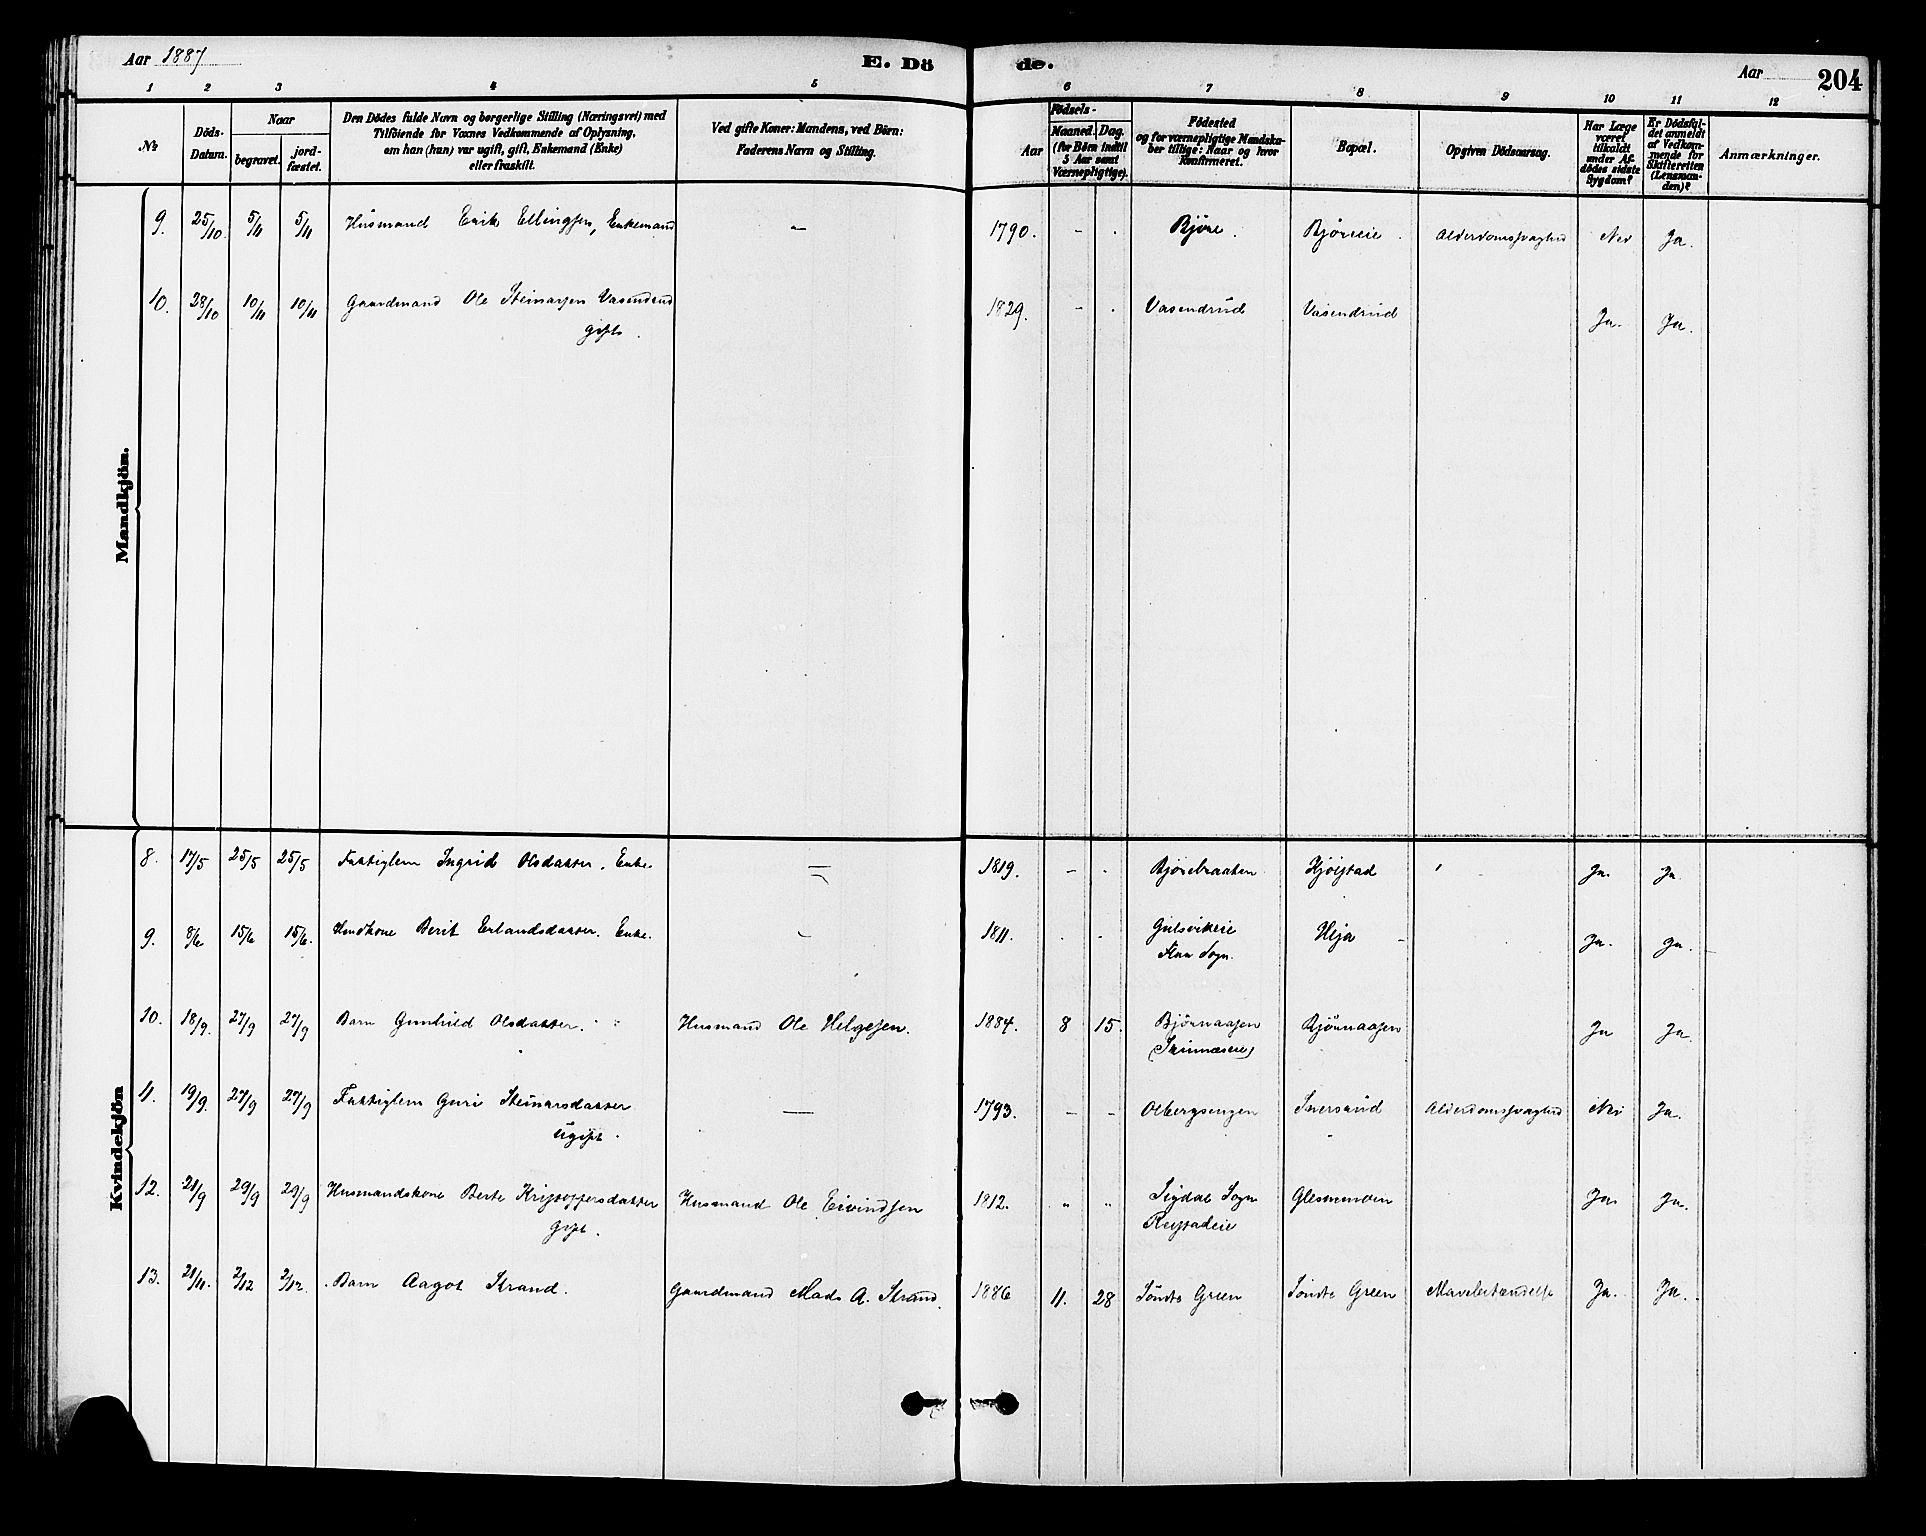 Aar 1887
E. Dö
de.
Aar
204
1 2 3 4 5 6 7 8 9 10 11 12
№
Döds-Datum.
Naar
begravet.
jord-fæstet.
Den Dödes fulde Navn og borgerlige Stilling (Næringsvei) med
Tilföiende for Voxnes Vedkommende af Oplysning,
om han (hun) var ugift, gift, Enkemand (Enke)
eller fraskilt.
Ved gifte Koner: Mandens, ved Börn:
Faderens Navn og Stilling.
Födsels-
Aar
Maaned. Dag.
(for Börn indtil
5 Aar samt
Værnepligtige).
Födested
og for værnepligtige Mandska-
ber tillige: Naar og hvor
Konfirmeret.
Bopæl.
Opgiven Dödsaarsag.
Har Læge
været
tilkaldt
under Af-
dödes sidste
Sygdom?
Er Dödsfal-
det anmeldt
af Vedkom-
mende for
Skifteretten
(Lensman-
den)?
Anmærkninger.
Mandkjön.
9. 25/10. 5/11 5/11 Husmand Erik Ellingsen, Enkemand - 1790. - . Björe. Björeeie. Alderdomssvaghed Nei Ja.
10. 28/10 10/11 10/11 Gaardmand Ole Steinarsen Vasendrud 1829. - . Vasendrud Vasendrud Ja. Ja.
gift.
Kvindekjön
8. 17/5 25/5 25/5 Fattiglem Ingrid Olsdatter. Enke. — 1819. - - Bjørebraaten Ja. Ja
9. 8/6 15/6 15/6. Berit Erlandsdatter. Enke. - 1811. . - Gulsvikeie Ja. Ja.
Flaa Sogn.
10. 18/9. 27/9 27/9 Barn Gunhild Olsdatter. Husmand Ole Helgesen. 1884. 8 15. Bjørnaasen Bjørnaasen Ja Ja.
11. 19/9. 27/9 27/9 Fattiglem Guri Steinarsdatter — 1793. - - Olbergsengen Alderdomssvaghed Nei Ja.
ugift.
12. 21/9 29/9 29/9 Husmandskone Berte Kristoffersdatter Husmand Ole Eivindsen 1812. " " Sigdal Sogn Glesnemoen Ja. Ja.
gift.
13. 21/11. 2/12 2/12. Barn Aagot Strand. Gaardmand Mads A. Strand. 1886 11. 28 Söndre Green Söndre Green Mavebetændelse Ja. Ja.